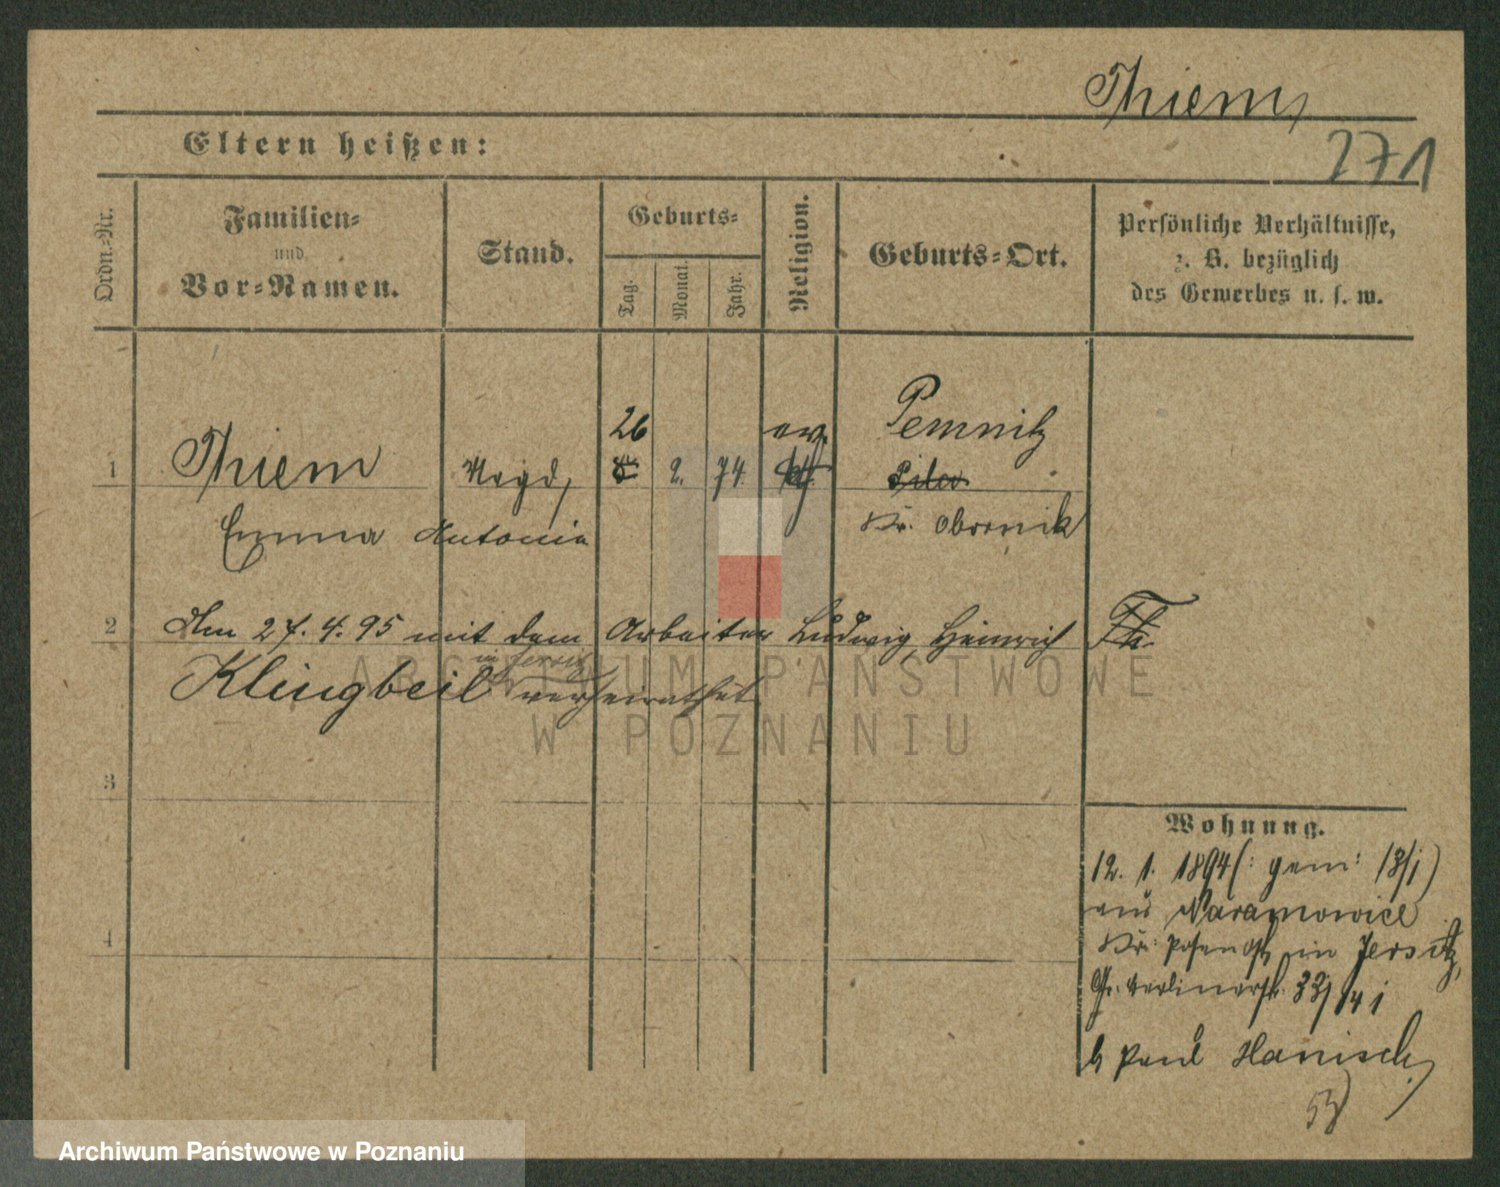 Thiem,
Eltern heißen:
271
Ordn.-Nr.
Familien-
und
Vor-Namen.
Stand.
Geburts-
Tag.
Monat.
Jahr.
Religion.
Geburts-Ort.
Persönliche Verhältnisse,
z. B. bezüglich
des Gewerbes u. s. w.
26 ev. Pemnitz
1 Thiem Magd, 2. 74
Emma Antonie Kr. Obornik
2 Am 27. 4. 95 mit dem Arbeiter Ludwig, Heinrich
in Jersitz
Klingbeil verheirathet
3
4
Wohnung.
12. 1. 1894 (: gem: 13/1)
aus Naramowice
Kr: Posen Ost, in Jersitz,
Gr. Berlinerstr. 33/14 i
b Paul Hanisch,
ARCHIWUM PAŃSTWOWE
W POZNANIU
Archiwum Państwowe w Poznaniu